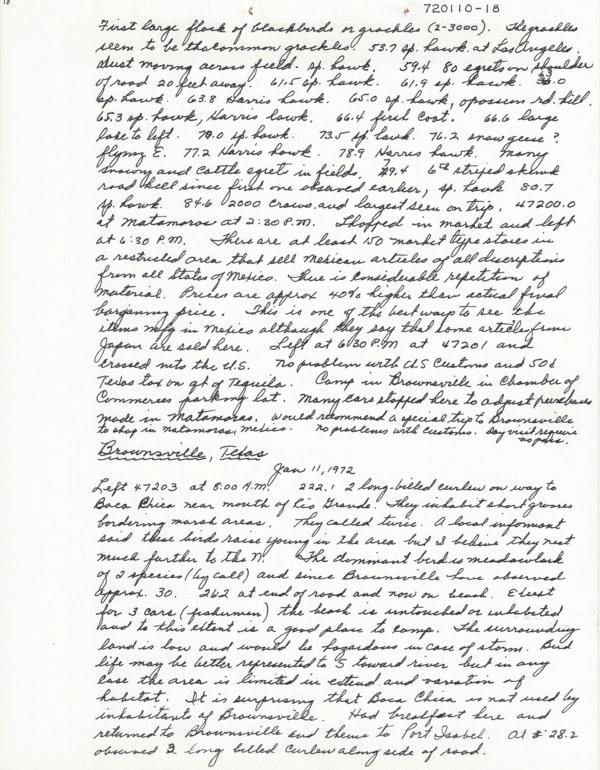 720110-18
First large flock of blackbirds or grackles (2-3000). The grackles
seem to be the common grackles. 53.7 sp. hawk. at Los Angeles.
dust moving across field. sp. hawk. 59.4 80 egrets on shoulder
of road 20 feet away. 61.5 sp. hawk. 61.9 sp. hawk. 63.0
sp. hawk. 63.8 Harris hawk. 65.0 sp. hawk, opossum rd. kill.
65.3 sp. hawk, Harris hawk. 66.4 first Coot. 66.6 large
lake to left. 70.0 sp. hawk. 73.5 sp. hawk. 76.2 snow geese?
flying E. 77.2 Harris hawk. 78.9 Harris hawk. Many
snowy and Cattle egrets in fields. 79.4 6th striped skunk
road kill since first one observed earlier, sp. hawk 80.7
sp. hawk. 84.6 2000 Crows and largest seen on trip. 47200.0
at Matamoros at 2:30 P.M. Shopped in market and left
at 6:30 P.M. There are at least 150 market type stores in
a restricted area that sell Mexican articles of all descriptions
from all States of Mexico. There is considerable repetition of
material. Prices are approx 40% higher than actual final
bargaining price. This is one of the best ways to see the
items mfg in Mexico although they say that some articles from
Japan are sold here. Left at 6:30 P.M at 47201 and
crossed into the U.S. no problem with U.S Customs and 50¢
Texas tax on qt of Tequila. Camp in Brownsville in Chamber of
Commerces parking lot. Many cars stopped here to adjust purchases
made in Matamoras. Would recommend a special trip to Brownsville
to shop in Matamoras, Mexico. No problems with Customs. Day visit require
no pass.
Brownsville, Texas
Jan 11, 1972
Left 47203 at 8:00 A.M. 222.1 2 long-billed curlew on way to
Boca Chica near mouth of Rio Grande. They inhabit short grasses
bordering marsh areas. They called twice. A local informant
said these birds raise young in the area but I believe they nest
much further to the N. The dominant bird is meadowlark
of 2 species (by call) and since Brownsville have observed
approx. 30. 262 at end of road and now on beach. Except
for 3 cars (fishermen) the beach is untouched or inhabited
and to this extent is a good place to camp. The surrounding
land is low and would be hazardous in case of storm. Bird
life may be better represented to S toward river but in any
case the area is limited in extend and variation of
habitat. It is surprising that Boca Chica is not used by
inhabitants of Brownsville. Had breakfast here and
returned to Brownsville and thence to Port Isabel. At 28.2
observed 2 long billed Curlew along side of road.